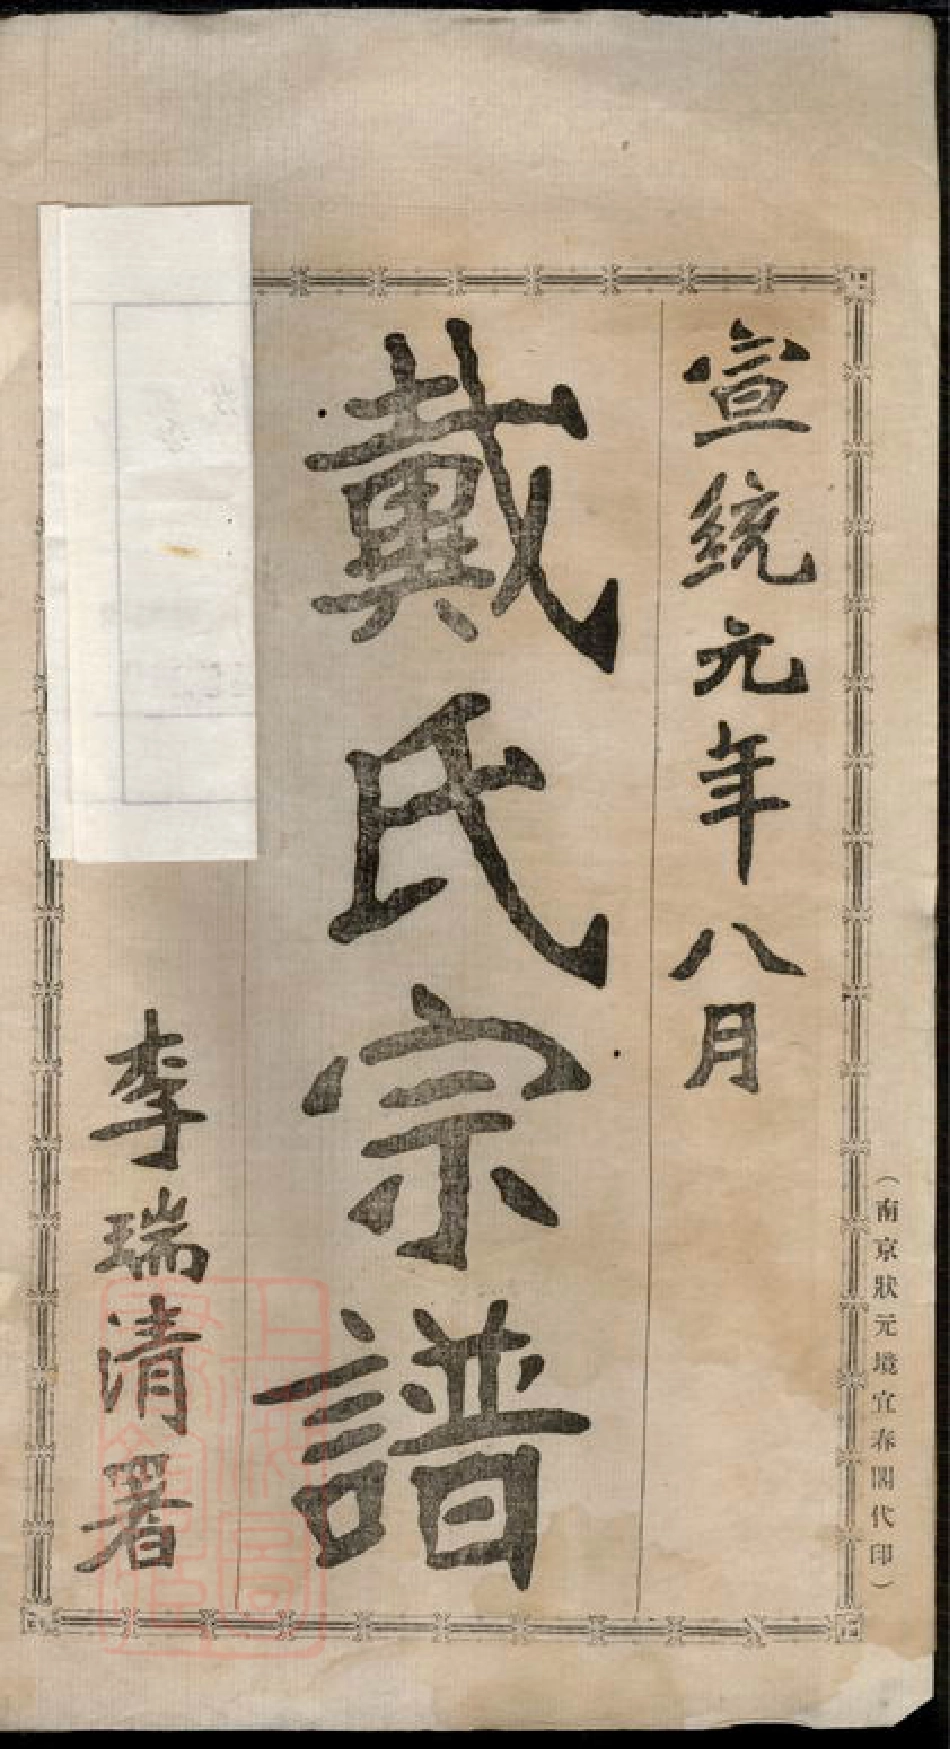 宣統元年八月
戴氏宗譜
李瑞清署
（南京狀元境宜春閣代印）
上海圖書館藏